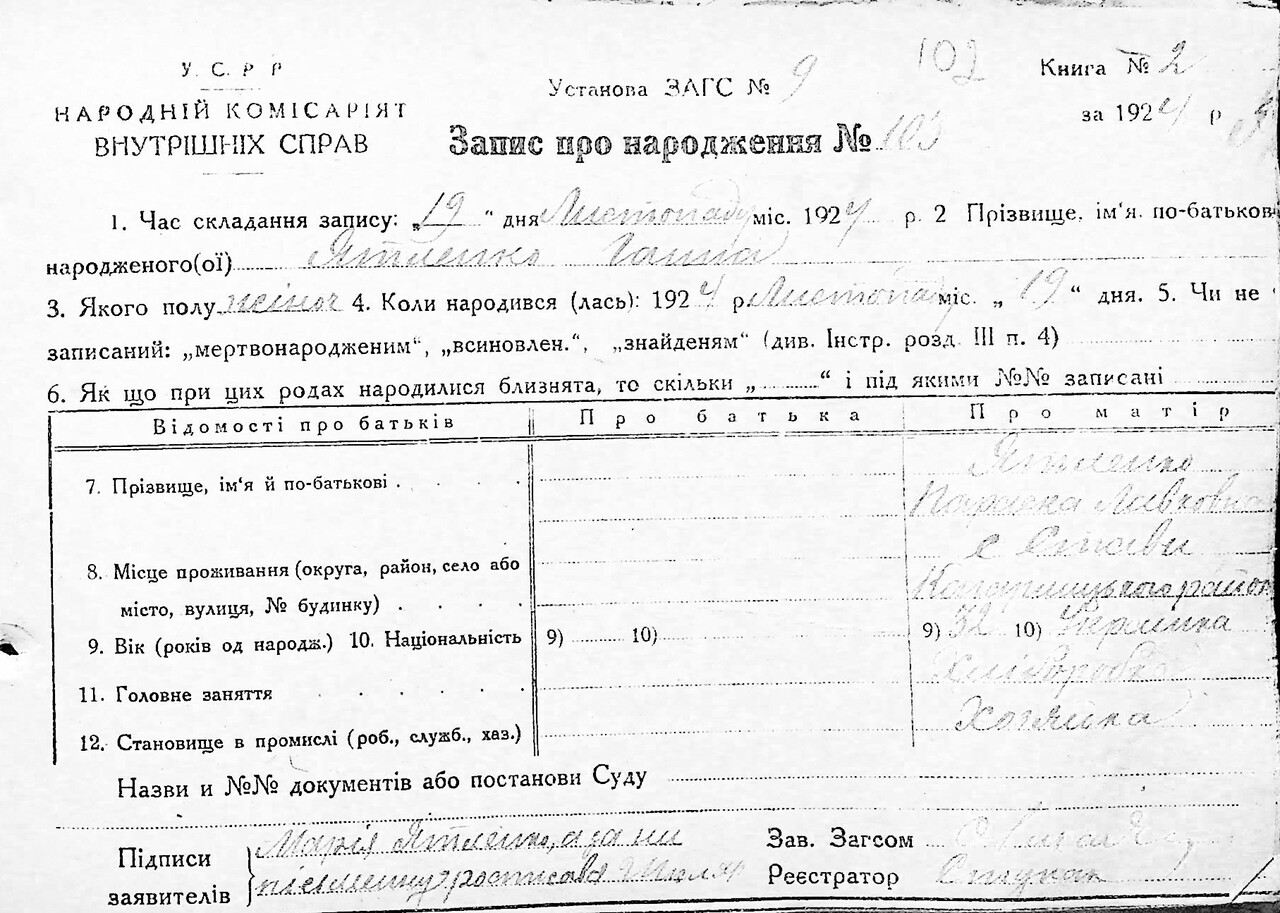 У. С. Р Р
НАРОДНІЙ КОМІСАРІЯТ
ВНУТРІШНІХ СПРАВ
Установа ЗАГС № 9
102
Книга № 2
за 1924 р
Запис про народження № 103
1. Час складання запису: „19“ дня Листопаду міс. 1924 р. 2 Прізвище. ім'я. по-батькові
народженого(ої) Ятленко Ганна
3. Якого полу жіноч 4. Коли народився (лась): 1924 р. Листопаду міс. „19“ дня. 5. Чи не
записаний: „мертвонародженим“, „всиновлен.“, „знайденям“ (див. Інстр. розд. III п. 4)
6. Як що при цих родах народилися близнята, то скільки „ “ і під якими №№ записані
Відомості про батьків Про батька Про матір
7. Прізвище, ім'я й по-батькові . . . . Ятленко
Параска Левковна
8. Місце проживання (округа, район, село або с Стави
місто, вулиця, № будинку) . . . . Кагарлицького район
9. Вік (років од народж.) 10. Національність 9) 10) 9) 32 10) Українка
11. Головне заняття . . . . . . Хлібороб
12. Становище в промислі (роб., служб., хаз.) Хозяйка
Назви и №№ документів або постанови Суду
Підписи заявителів
Марія Ятленко, а за ни
письменну росписався
Зав. Загсом
Реєстратор Ступак